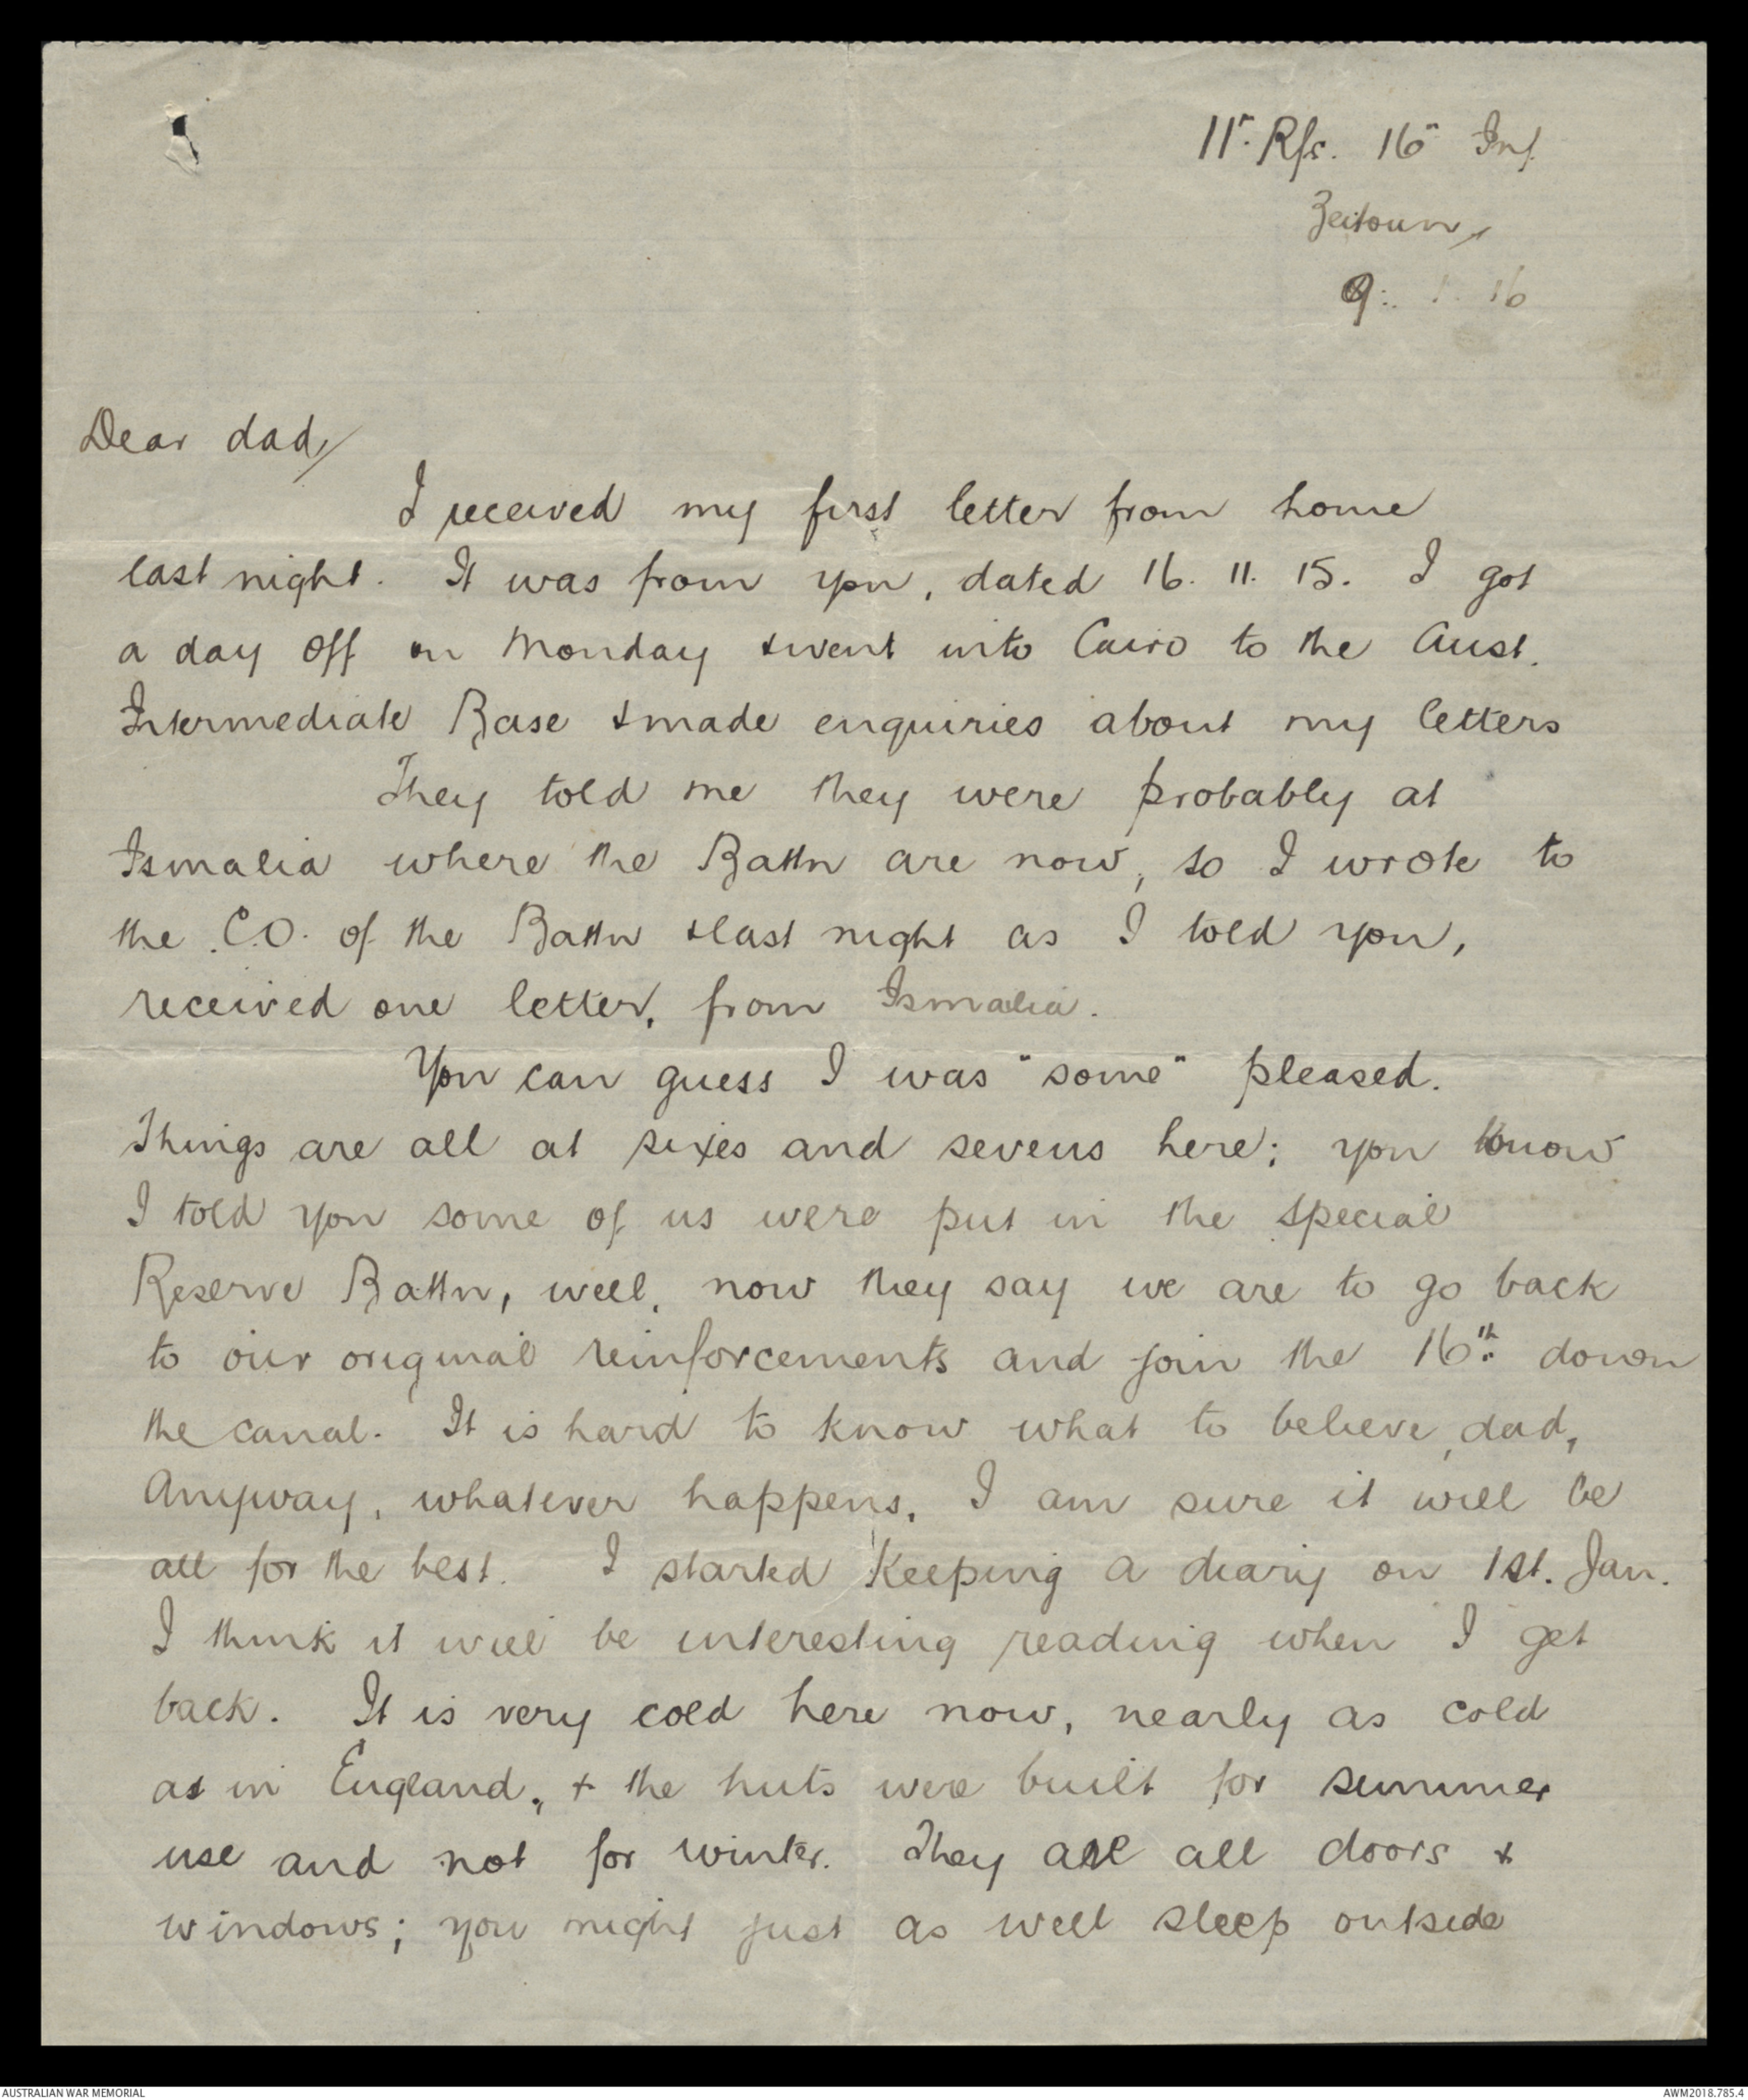 11". Rfs. 16" Inf.
Zeitoun,
9: 1. 16
Dear dad,
I received my first letter from home
last night. It was from you, dated 16. 11. 15. I got
a day off on Monday & went into Cairo to the Aust.
Intermediate Base & made enquiries about my letters
They told me they were probably at
Ismalia where the Battn are now, so I wrote to
the C.O. of the Battn & last night as I told you,
received one letter, from Ismalia.
You can guess I was "some" pleased.
Things are all at sixes and sevens here; you know
I told you some of us were put in the special
Reserve Battn, well, now they say we are to go back
to our original reinforcements and join the 16th down
the canal. It is hard to know what to believe, dad,
Anyway, whatever happens, I am sure it will be
all for the best. I started keeping a diary on 1st. Jan.
I think it will be interesting reading when I get
back. It is very cold here now, nearly as cold
as in England, & the huts were built for summer
use and not for winter. They are all doors &
windows; you might just as well sleep outside
AUSTRALIAN WAR MEMORIAL
AWM2018.785.4